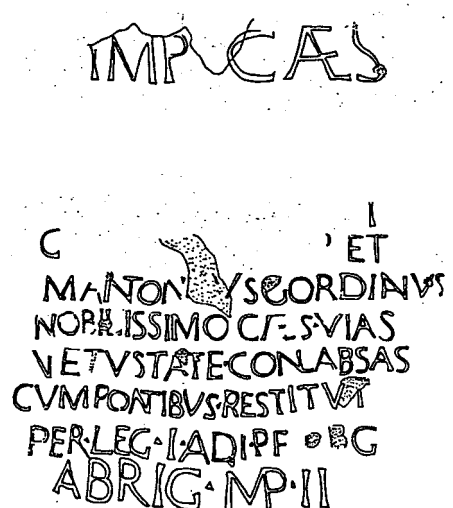 IMP CAES
I
C ET
M ANTON VS GORDIANVS
NOBILISSIMO CAES VIAS
VETVSTATE CONLABSAS
CVM PONTIBVS RESTITVT
PER LEG I ADI PF G
A BRIG MP II